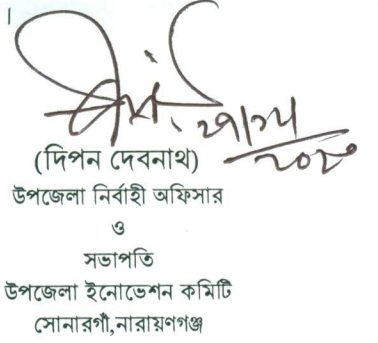 (দিপন দেবনাথ)
উপজেলা নির্বাহী অফিসার
ও
সভাপতি
উপজেলা ইনোভেশন কমিটি
সোনারগাঁ,নারায়ণগঞ্জ